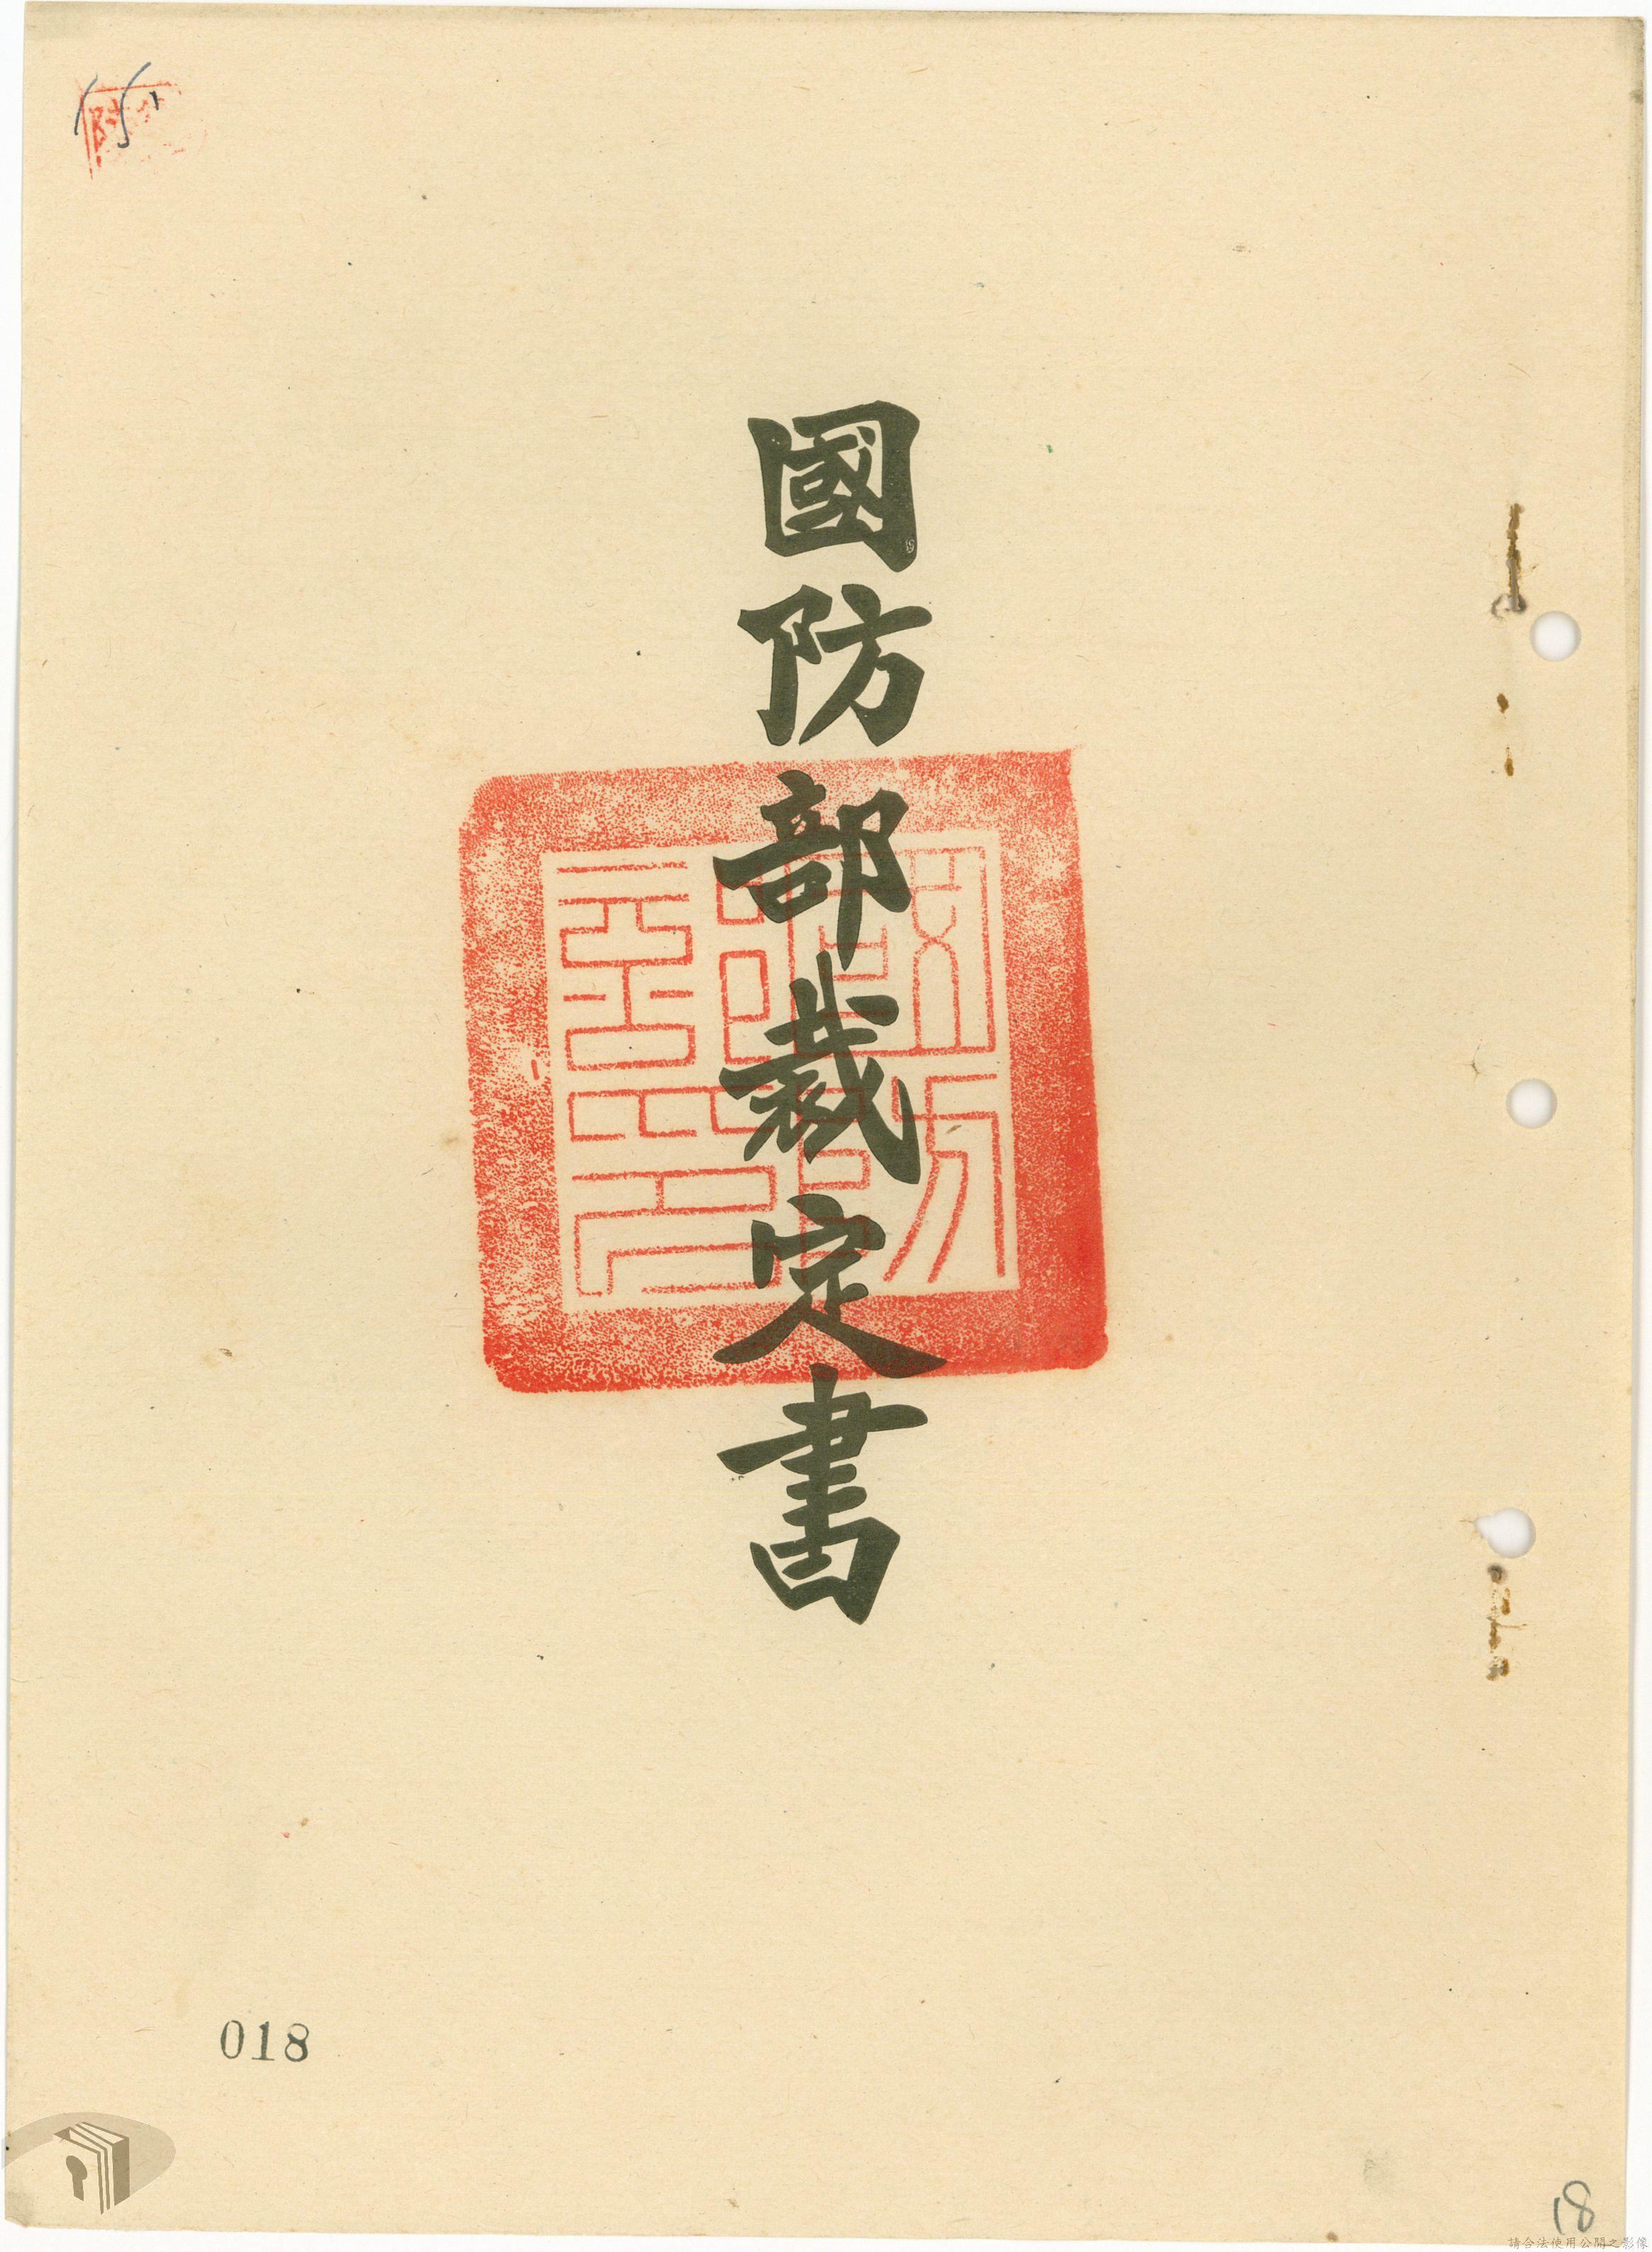 附
國防部裁定書
018
18
請合法使用公開之影像